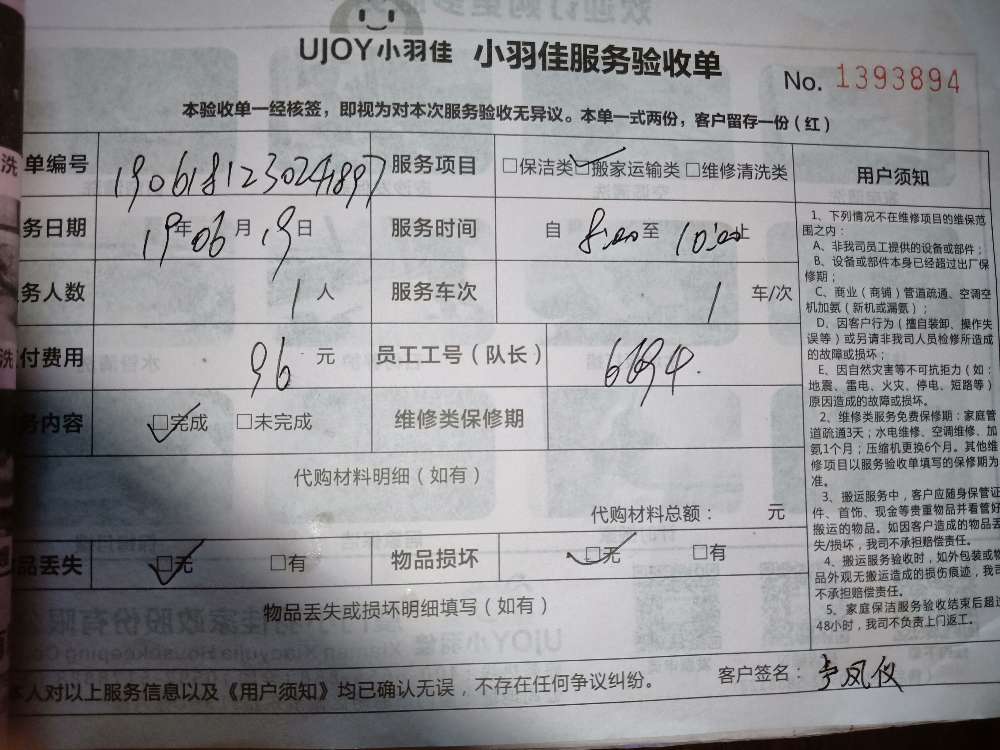 UJOY小羽佳 小羽佳服务验收单
No. 1393894
本验收单一经核签，即视为对本次服务验收无异议。本单一式两份，客户留存一份（红）
单编号 190618123024897 服务项目 □保洁类 ☑搬家运输类 □维修清洗类
务日期 19年06月19日 服务时间 自 8:00至 10:00止
务人数 1人 服务车次 1 车/次
付费用 96 元 员工工号（队长） 6694
务内容 ☑完成 □未完成 维修类保修期
代购材料明细（如有）
代购材料总额： 元
品丢失 ☑无 □有 物品损坏 ☑无 □有
物品丢失或损坏明细填写（如有）
本人对以上服务信息以及《用户须知》均已确认无误，不存在任何争议纠纷。 客户签名： 凤仪
用户须知
1、下列情况不在维修项目的维保范
围之内：
A、非我司员工提供的设备或部件；
B、设备或部件本身已经超过出厂保
修期；
C、商业（商铺）管道疏通、空调空
机加氨（新机或漏氨）；
D、因客户行为（擅自装卸、操作失
误等）或另请非我司人员检修所造成
的故障或损坏；
E、因自然灾害等不可抗拒力（如：
地震、雷电、火灾、停电、短路等）
原因造成的故障或损坏。
2、维修类服务免费保修期：家庭管
道疏通3天；水电维修、空调维修、加
氨1个月；压缩机更换6个月。其他维
修项目以服务验收单填写的保修期为
准。
3、搬运服务中，客户应随身保管证
件、首饰、现金等贵重物品并看管好
搬运的物品。如因客户造成的物品丢
失/损坏，我司不承担赔偿责任。
4、搬运服务验收时，如外包装或物
品外观无搬运造成的损伤痕迹，我司
不承担赔偿责任。
5、家庭保洁服务验收结束后超过
48小时，我司不负责上门返工。